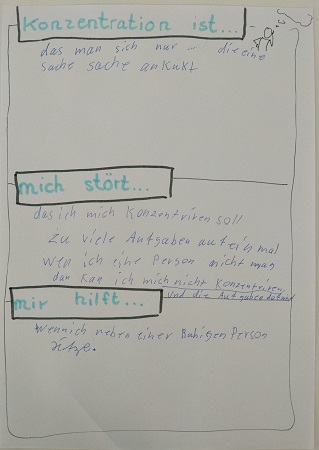 Konzentration ist...
das man sich nur die eine
sache sache ankukt
mich stört...
das ich mich Konzentriren soll
zu viele Aufgaben auf einmal
wen ich eine Person nicht mag
dan kan ich mich nicht Konzentriren
und die Aufgaben
mir hilft...
wennich neben einer Ruhigen Person
sitze.